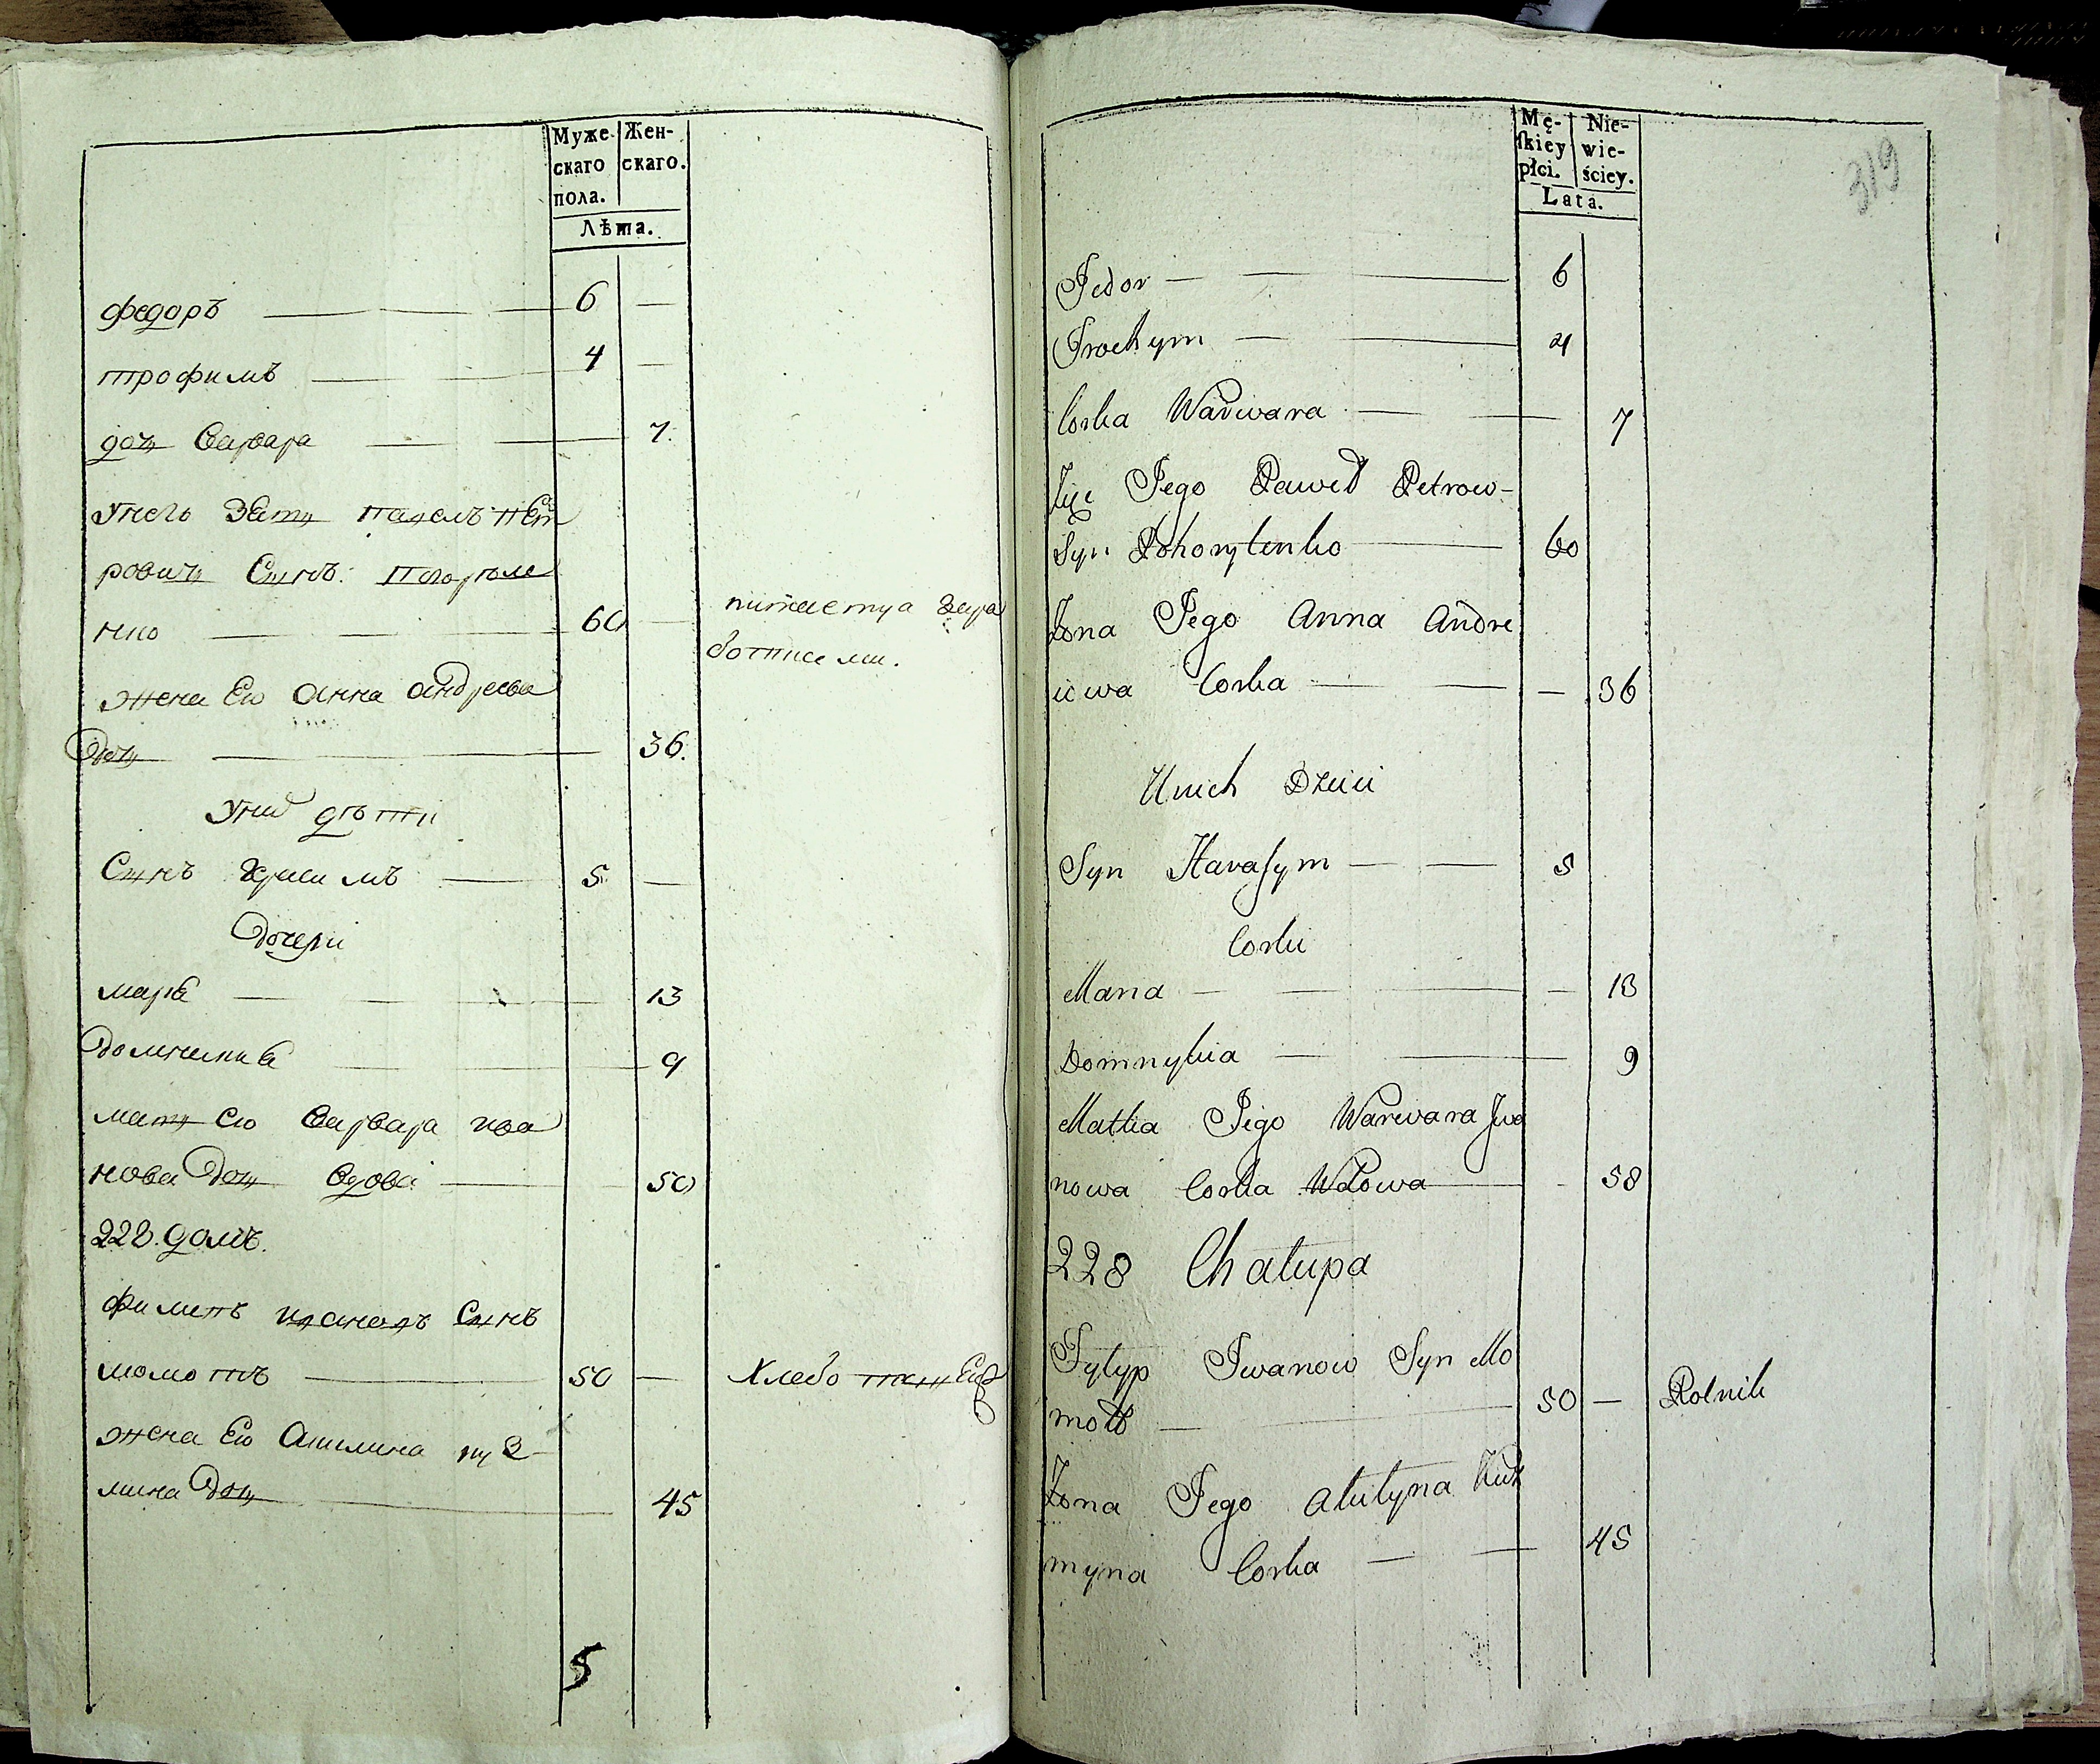 Муже-
скаго
пола.
Жен-
скаго.
Лѣта.
федоръ 6 —
трофимъ 4 —
доч Варвара 7.
унего Зять павелъ пет
рович Сынъ: погорѣле
нко 60 — питается зара
ботками.
жена Его Анна андреева
Доч 36.
уних дѣти
Сынъ Герасимъ 5 —
Дочери
маря 13
Домникия 9
мать Его Варвара ива
нова Доч вдова 50
228. домъ.
филипъ ивановъ Сынъ
момотъ 50 — Хлебо
жена Его Акилина куз-
мина Доч 45
5
Mę-
skiey
płci.
Nie-
wie-
ściey.
Lata.
319
Fedor 6
Trochym 4
Corka Warwara 7
Jego Paweł Petrow-
Syn Pohorylenko 60
Zona Jego Anna Andre
iewa Corka — 36
U nich Dzieci
Syn Harasym 5
Corki
Maria — 13
Domnykia 9
Matka Jego Warwara Iwa
nowa Corka Wdowa 58
228 Chałupa
Fylyp Iwanow Syn Mo
mott 50 — Rolnik
Zona Jego Akulyna Kuz
myna Corka 45